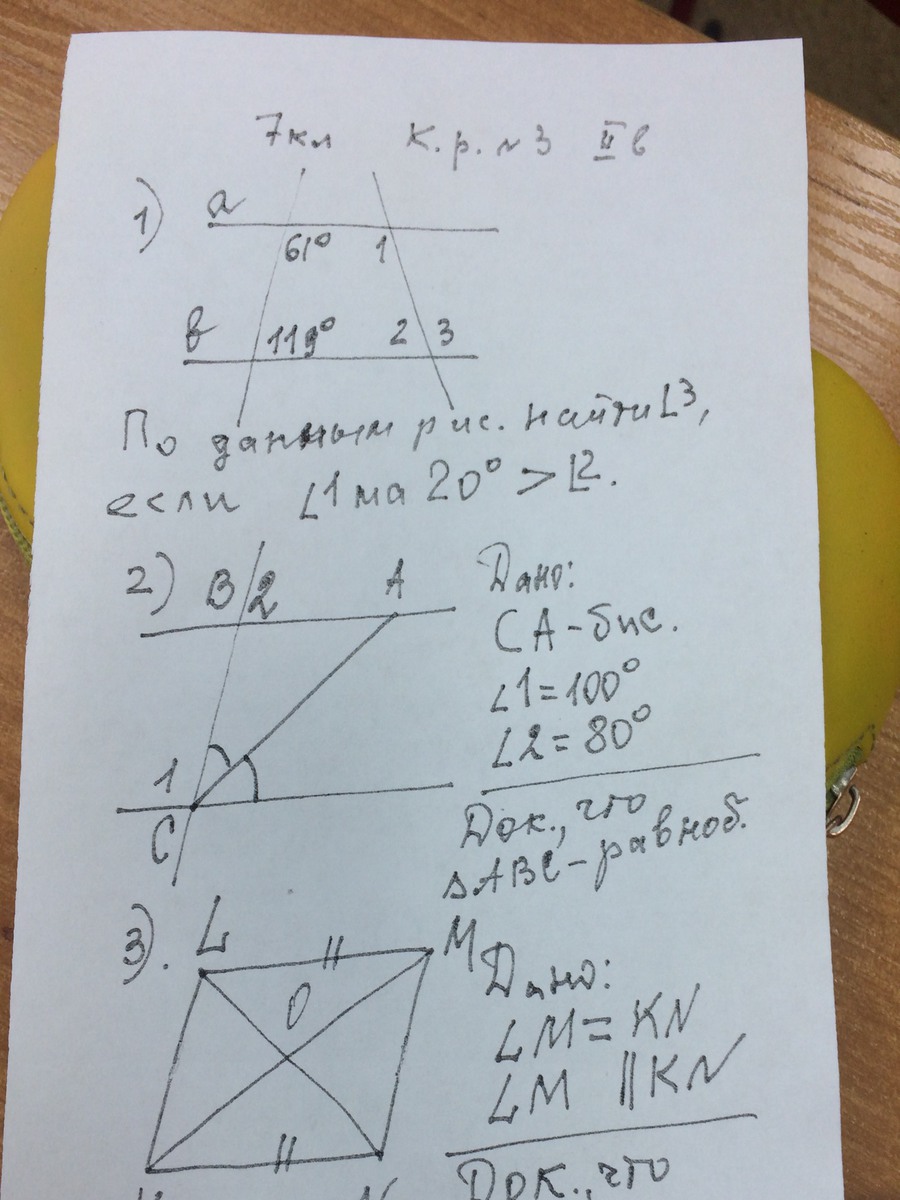 7кл К.р. №3 II в
1)
а
61° 1
в
119° 2 3
По данным рис. найти ∠3,
если ∠1 на 20° > ∠2.
2) В 2 А
1
С
Дано:
СА-бис.
∠1=100°
∠2=80°
Док., что
△АВС-равноб.
3). L M
O
Дано:
LM=KN
LM ||KN
Док., что